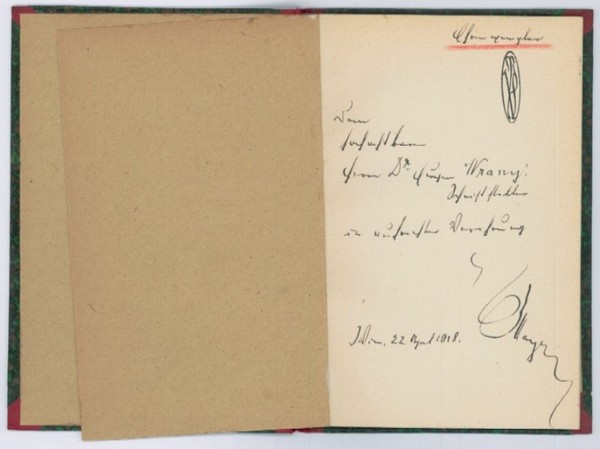 Ehrenexemplar
Dem
hochachtbaren
Herrn Dr. Eugen Wrany,
Schriftsteller
in aufrichter Verehrung
Mayer
Wien, 22 April 1918.